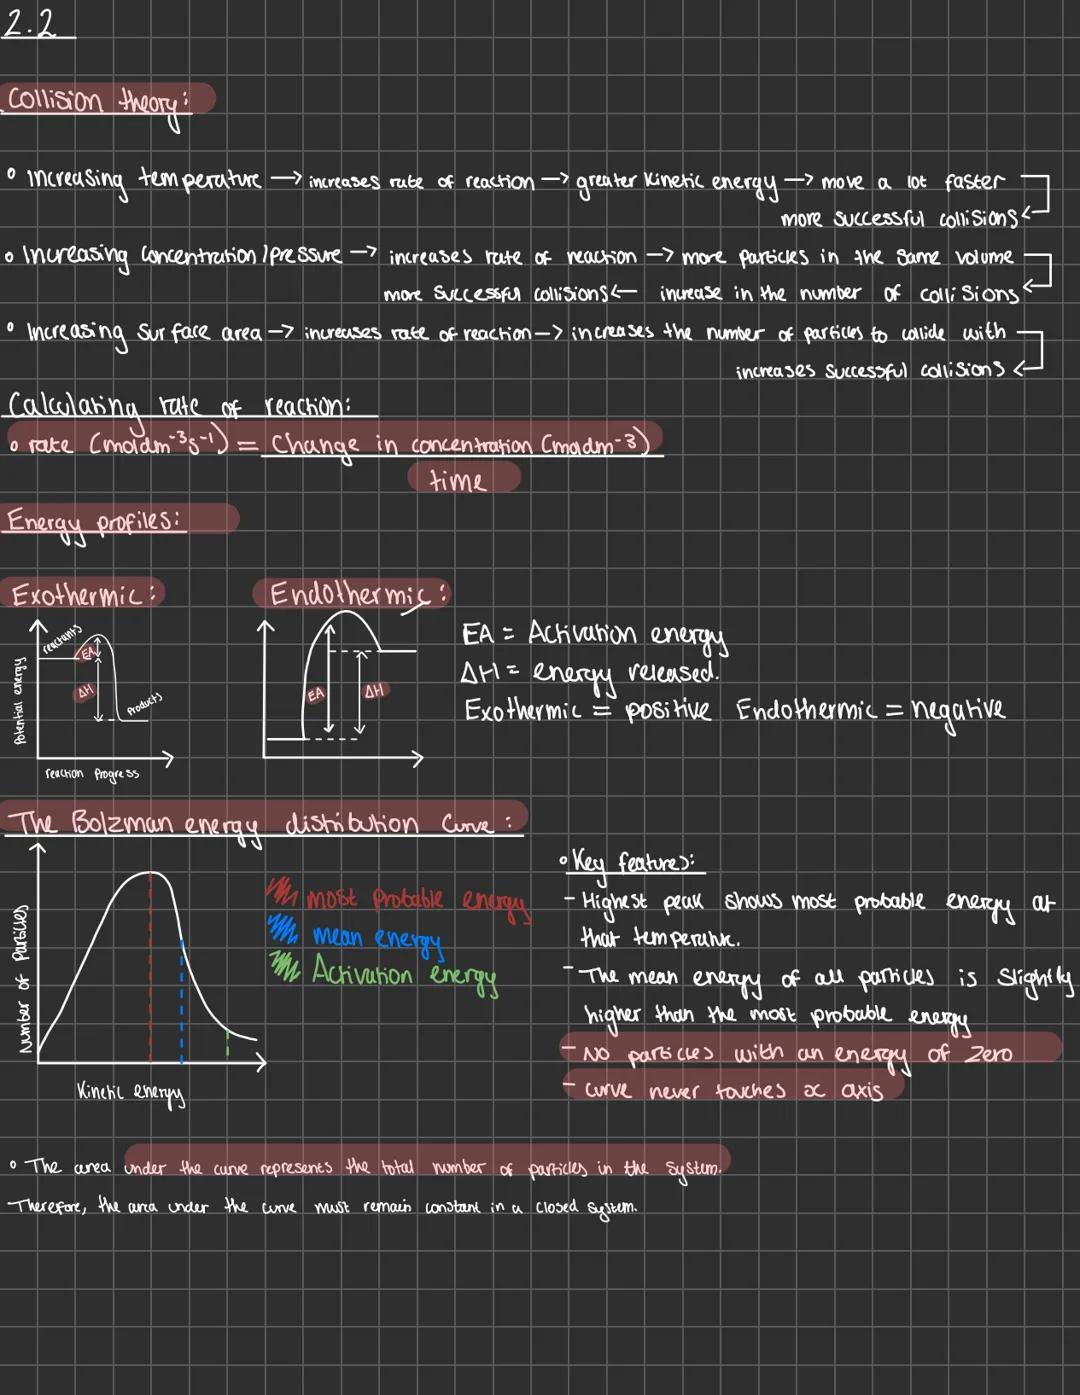 2.2
Collision theory:
• Increasing temperature → increases rate of reaction → greater kinetic energy → move a lot faster
more successful collisions
• Increasing concentration/pressure → increases rate of reaction → more particles in the same volume
more successful collisions ← increase in the number of collisions
• Increasing surface area → increases rate of reaction → increases the number of particles to collide with
increases successful collisions
Calculating rate of reaction:
• rate (moldm-3s-1) = Change in concentration (moldm-3)
time
Energy profiles:
Exothermic: Endothermic:
reactants
EA
ΔH
products
Potential energy
reaction Progress
EA ΔH
EA = Activation energy
ΔH = energy released.
Exothermic = positive Endothermic = negative
The Bolzman energy distribution Curve:
Number of Particles
Kinetic energy
most probable energy
mean energy
Activation energy
• Key features:
- Highest peak shows most probable energy at
that temperature.
- The mean energy of all particles is slightly
higher than the most probable energy
- No particles with an energy of zero
- curve never touches x axis
• The area under the curve represents the total number of particles in the system.
Therefore, the area under the curve must remain constant in a closed system.